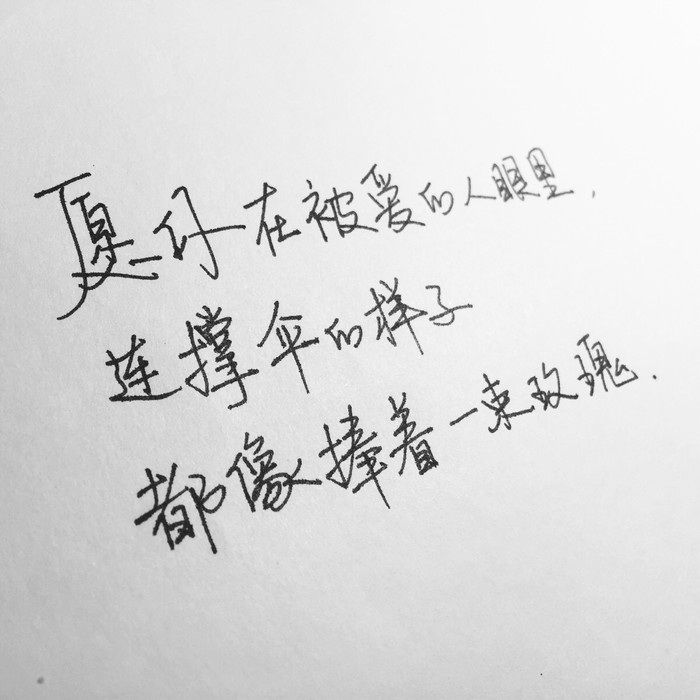 愿你在被爱的人眼里,
连撑伞的样子
都像捧着一束玫瑰.